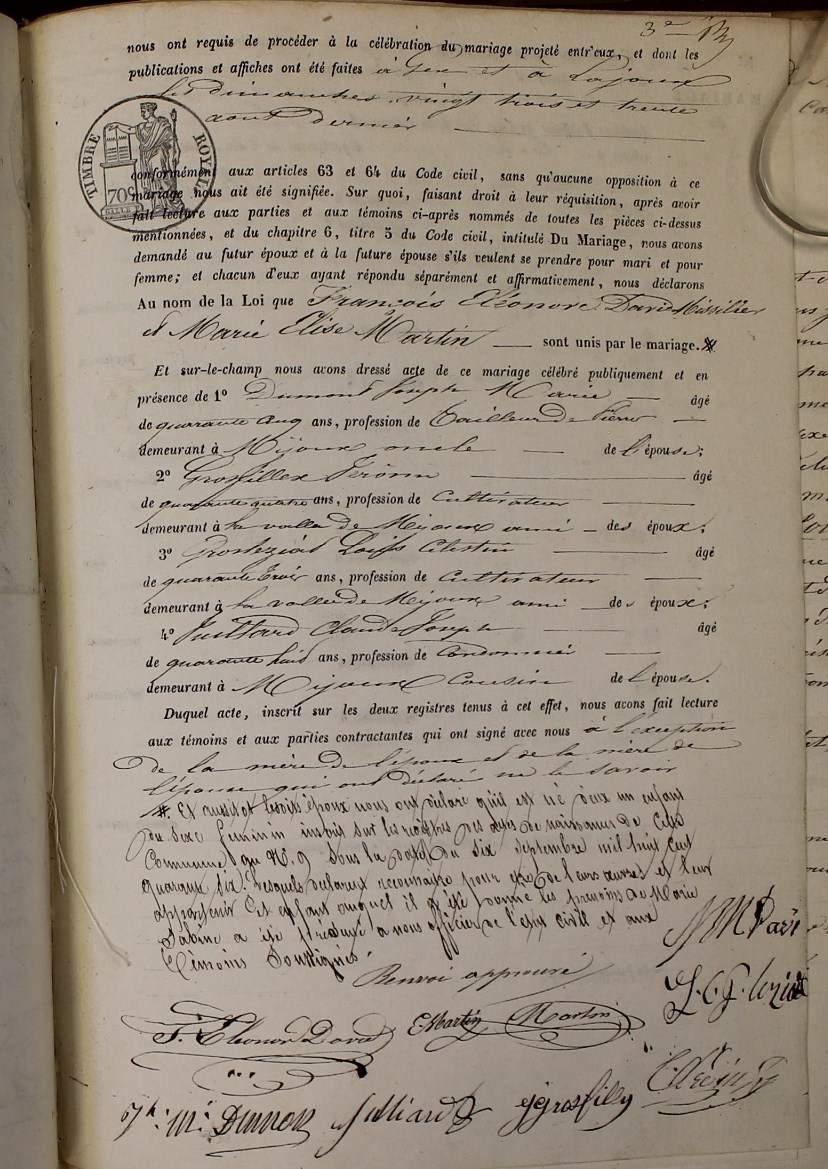 3e
nous ont requis de procéder à la célébration du mariage projeté entr'eux, et dont les
publications et affiches ont été faites à Gex et à Lajoux
les dimanches vingt trois et trente
aout dernier
TIMBRE ROYAL
70c
conformément aux articles 63 et 64 du Code civil, sans qu'aucune opposition à ce
mariage nous ait été signifiée. Sur quoi, faisant droit à leur réquisition, après avoir
fait lecture aux parties et aux témoins ci-après nommés de toutes les pièces ci-dessus
mentionnées, et du chapitre 6, titre 5 du Code civil, intitulé Du Mariage, nous avons
demandé au futur époux et à la future épouse s'ils veulent se prendre pour mari et pour
femme; et chacun d'eux ayant répondu séparément et affirmativement, nous déclarons
Au nom de la Loi que François Eléonore David Missilier
et Marie Elise Martin sont unis par le mariage. #
Et sur-le-champ nous avons dressé acte de ce mariage célébré publiquement et en
présence de 1º Dumont Joseph Marie âgé
de quarante cinq ans, profession de Tailleur de Pierre
demeurant à Mijoux oncle de l'épouse;
2º Grosfillex Jérôme âgé
de quarante quatre ans, profession de Cultivateur
demeurant à la vallée de Mijoux ami des époux;
3º Louis Célestin âgé
de quarante trois ans, profession de Cultivateur
demeurant à la vallée de Mijoux ami des époux;
4º Juillard Claude Joseph âgé
de quarante huit ans, profession de Cordonnier
demeurant à Mijoux Cousin de l'épouse.
Duquel acte, inscrit sur les deux registres tenus à cet effet, nous avons fait lecture
aux témoins et aux parties contractantes qui ont signé avec nous à l'exception
de la mère de l'époux et de la mère de
l'épouse qui ont déclaré ne le savoir
#. Et aussitot lesdits époux nous ont déclaré qu'il est né deux un enfant
du sexe féminin inscrit sur les registres des actes de naissances de cette
Commune sous la date du six septembre mil huit cent
quarante six. lesquels déclarent reconnaitre pour être de leurs œuvres et leur
appartenir cet enfant auquel il a été donné les prénoms de Marie
Sabine a été à nous officier de l'état civil et aux
témoins soussignés.
Renvoi approuvé
F. Eleonor David E Martin Martin
Jh. Mie Dumont Julliard